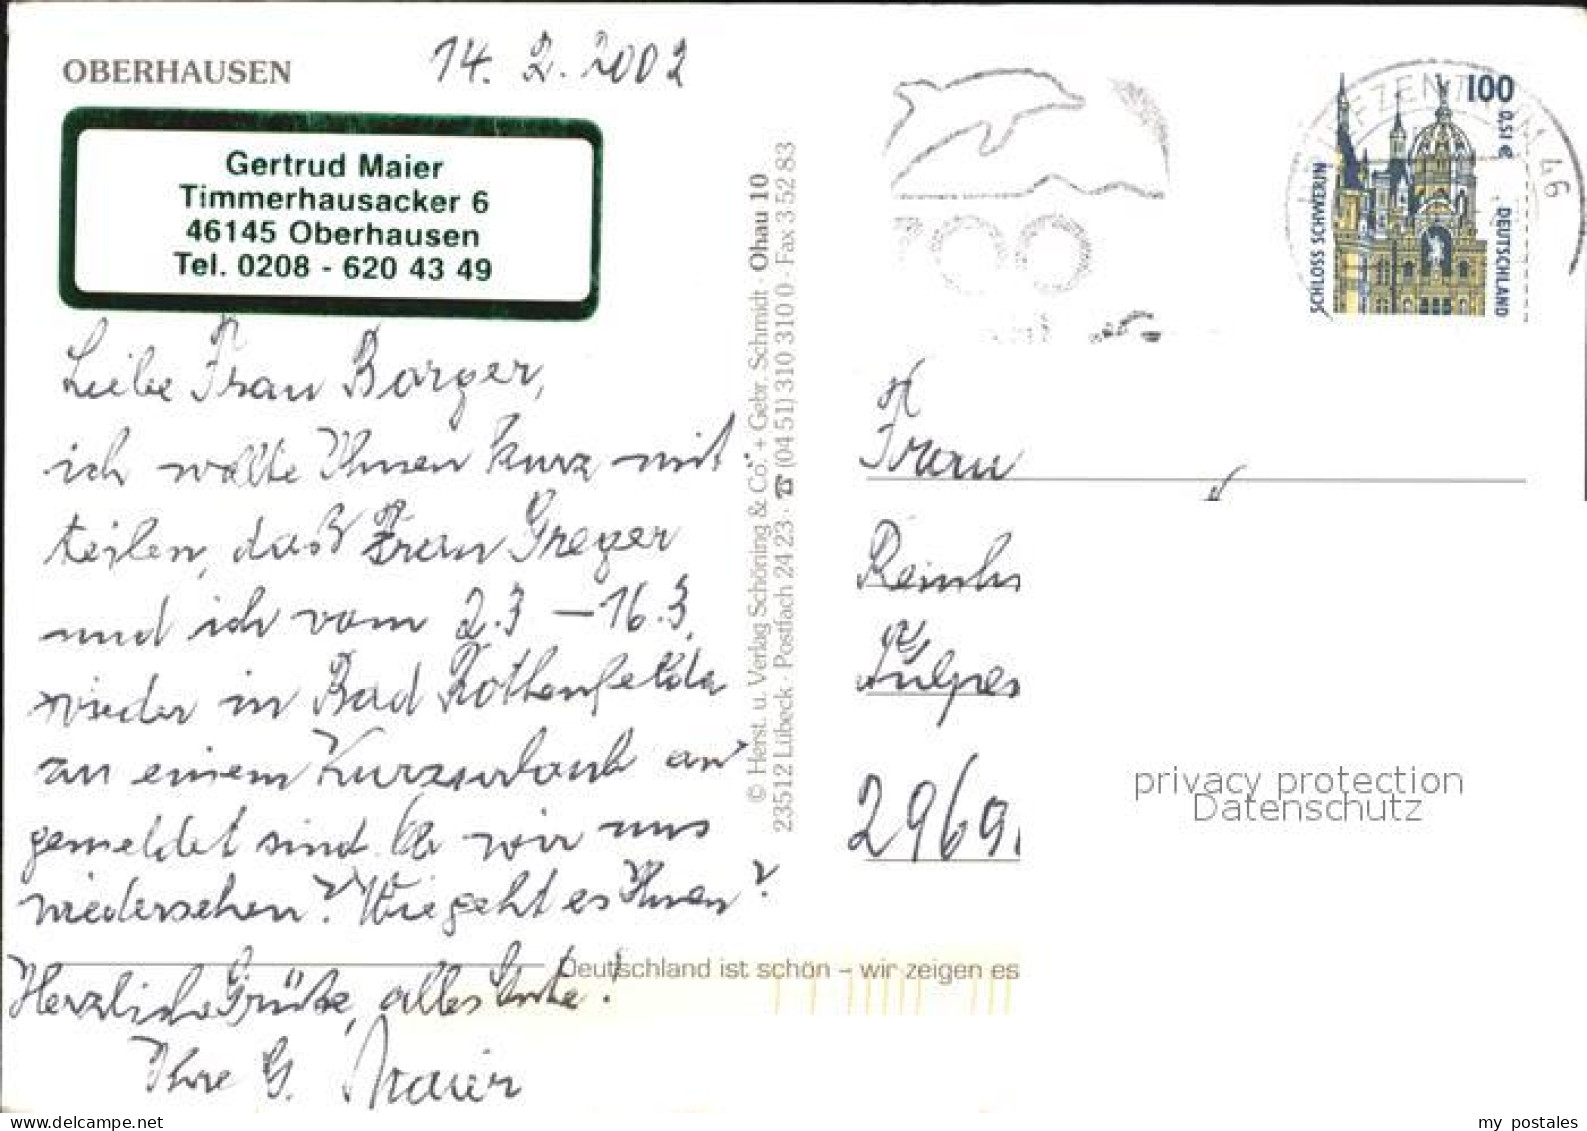 OBERHAUSEN
14. 2. 2002
Gertrud Maier
Timmerhausacker 6
46145 Oberhausen
Tel. 0208 - 620 43 49
Liebe Frau Borger,
ich wollte Ihnen kurz mit
teilen, daß Frau Greger
und ich vom 2.3 – 16.3.
wieder in Bad Rothenfelde
zu einem Kurzurlaub an
gemeldet sind. Ob wir uns
wiedersehen? Wie geht es Ihnen?
Herzliche Grüße, alles Gute!
Ihre G. Maier
© Herst. u. Verlag Schöning & Co. + Gebr. Schmidt · Ohau 10
23512 Lübeck · Postfach 24 23 · ☎ (04 51) 310 310 0 · Fax 3 52 83
Deutschland ist schön – wir zeigen es
100
0,51 €
SCHLOSS SCHWERIN
DEUTSCHLAND
46
Frau
2969
privacy protection
Datenschutz
www.delcampe.net
my_postales